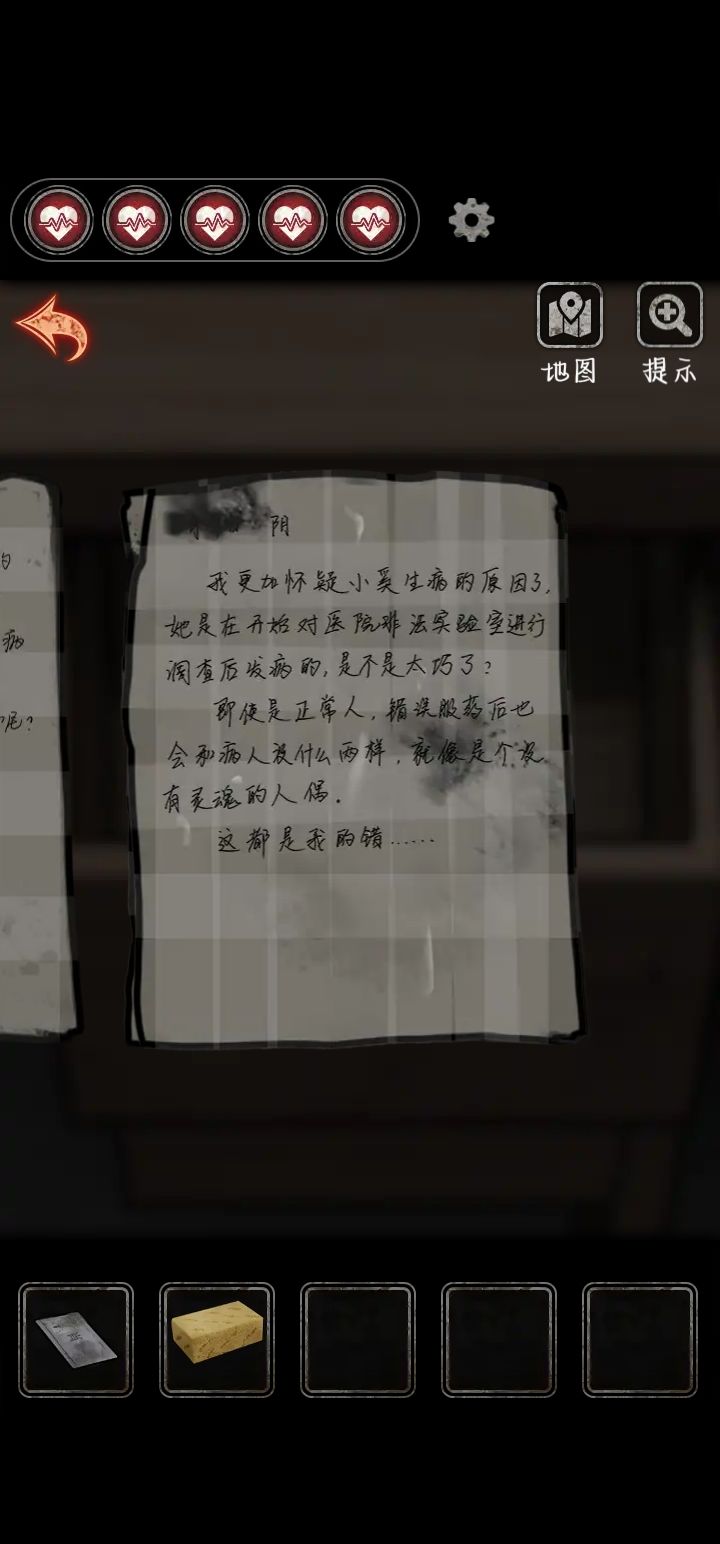 地图
提示
阴
我更加怀疑小奚生病的原因了，
她是在开始对医院非法实验室进行
调查后发病的，是不是太巧了？
即使是正常人，错误服药后也
会和病人没什么两样，就像是个没
有灵魂的人偶。
这都是我的错……
病
呢？